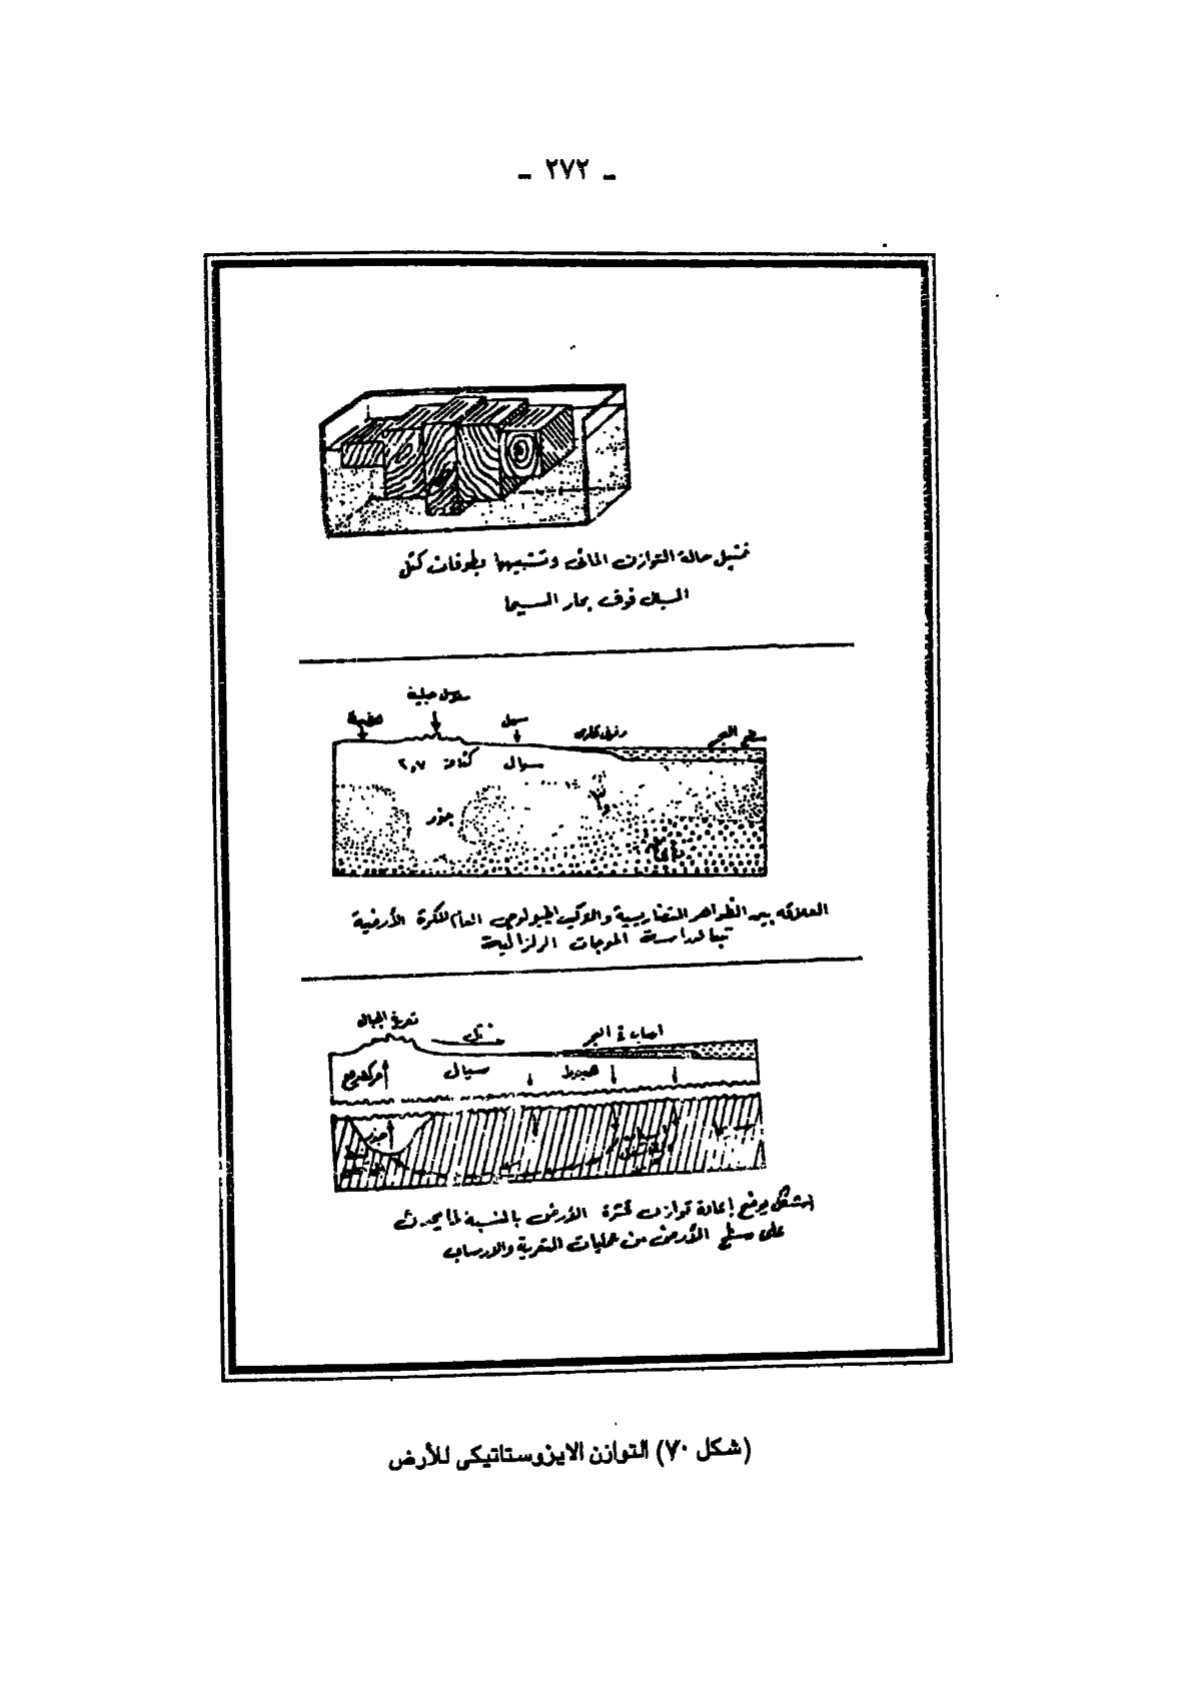 ـ ٢٧٢ ـ
تمثيل حالة التوازن المائى وتشبيهها بطوفان كتل
السيال فوق بحار السيما
سلاسل جبلية
هضبة
سهل
رصيف قارى
سطح البحر
كثافة ٢,٧
سيال
جذر
العلاقه بين الظواهر التضاريسية والتركيب الجيولوجى العام للكرة الأرضية
تبعا لدراسة الموجات الزلزالية
تعرية الجبال
نقل
ارساب فى البحر
سيال
هبوط
جذر
الشكل يوضح إعادة توازن قشرة الأرض بالنسبة لما يحدث
على سطح الأرض من عمليات التعرية والارساب
(شكل ٧٠) التوازن الايزوستاتيكى للأرض